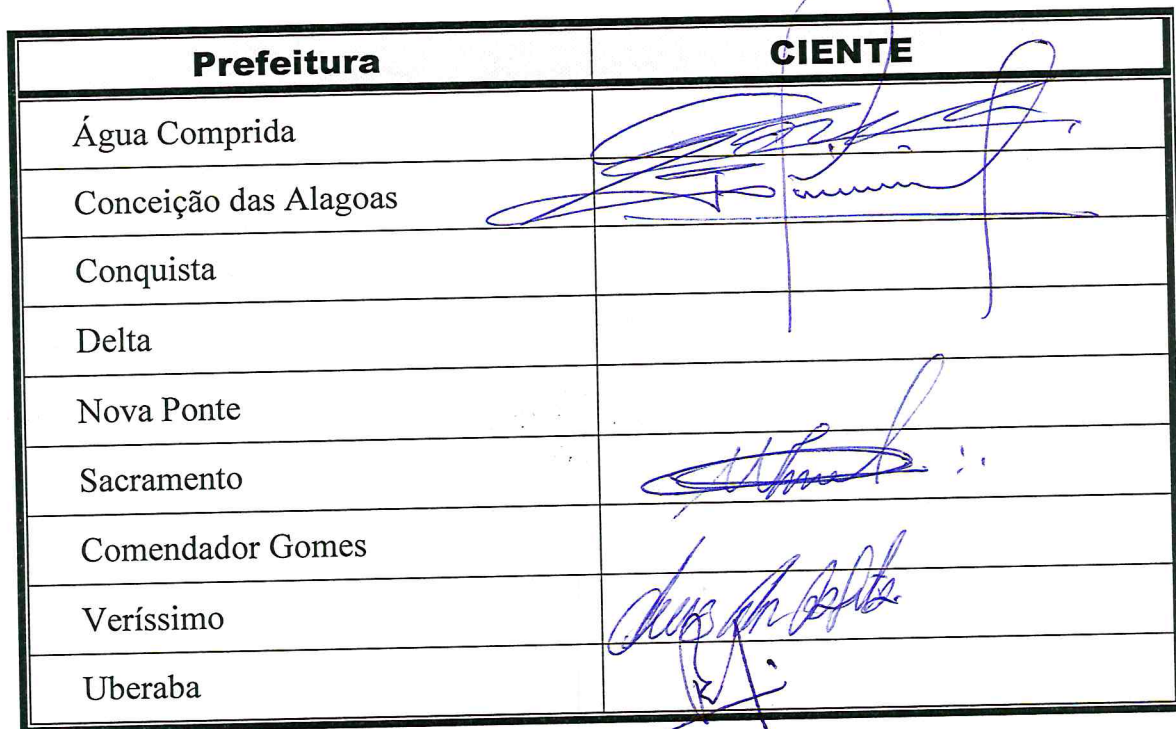 Prefeitura CIENTE
Água Comprida
Conceição das Alagoas
Conquista
Delta
Nova Ponte
Sacramento
Comendador Gomes
Veríssimo
Uberaba